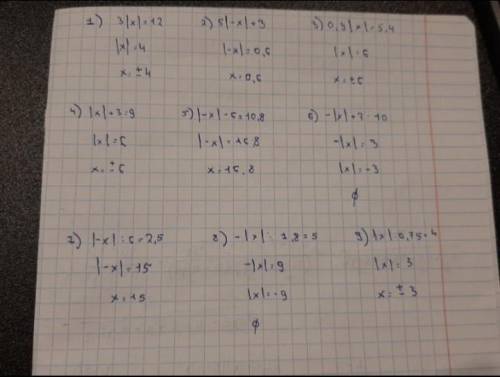 1) 3|x|=12
2) 5|-x|=3
3) 0,9|x|=5,4
|x|=4
|-x|=0,6
|x|=6
x=±4
x=0,6
x=±6
4) |x|+3=9
5) |-x|-6=10,8
6) -|x|+7=10
|x|=6
|-x|=16,8
-|x|=3
x=±6
x=16,8
|x|=-3
∅
7) |-x|:6=2,5
8) -|x|:1,8=5
9) |x|:0,75=4
|-x|=15
-|x|=9
|x|=3
x=15
|x|=-9
x=±3
∅